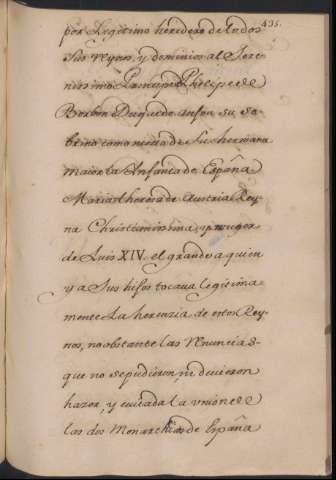 435.
por Legitimo heredero de todos
sus reynos, y dominios al Sere-
nissimo Principe Phelipe de
Borbon Duque de Anjou su so-
brino como nieto de su hermana
maior la Infanta de España
Maria theresa de Austria Rey-
na Christianissima, y muger
de Luis XIV. el grande a quien
y a sus hijos tocava legitima-
mente la herencia de estos Rey-
nos, no obstante las renuncias
que no se pudieron, ni devieron
hazer, y evitada la union de
las dos Monarchias de España